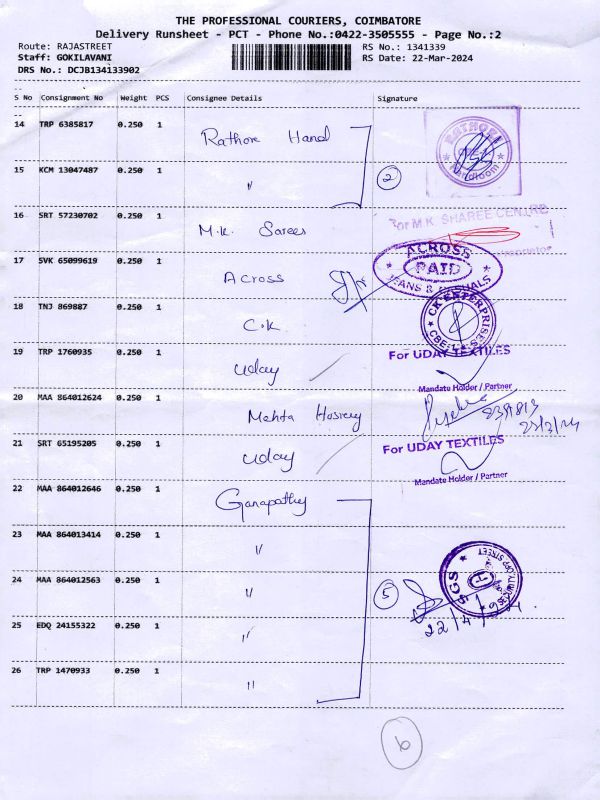 THE PROFESSIONAL COURIERS, COIMBATORE
Delivery Runsheet - PCT - Phone No.:0422-3505555 - Page No.:2
Route: RAJASTREET
RS No.: 1341339
Staff: GOKILAVANI
RS Date: 22-Mar-2024
DRS No.: DCJB134133902
S No Consignment No Weight PCS Consignee Details Signature
14 TRP 6385817 0.250 1 Rathore Hand
RATHORE
Handloom
15 KCM 13047487 0.250 1 "
2
16 SRT 57230702 0.250 1 M.K. Sarees
For M K SHAREE CENTRE
Proprietor
17 SVK 65099619 0.250 1 Across
ACROSS
PAID
JEANS & CASUALS
18 TNJ 869887 0.250 1 C.K
CK ENTERPRISES
CBE-1
19 TRP 1760935 0.250 1 Uday
For UDAY TEXTILES
Mandate Holder / Partner
20 MAA 864012624 0.250 1 Mehta Hosiery
21 SRT 65195205 0.250 1 Uday
For UDAY TEXTILES
Mandate Holder / Partner
22 MAA 864012646 0.250 1 Ganapathy
23 MAA 864013414 0.250 1 "
24 MAA 864012563 0.250 1 "
5
SGS
OPP STREET
25 EDQ 24155322 0.250 1 "
26 TRP 1470933 0.250 1 "
6